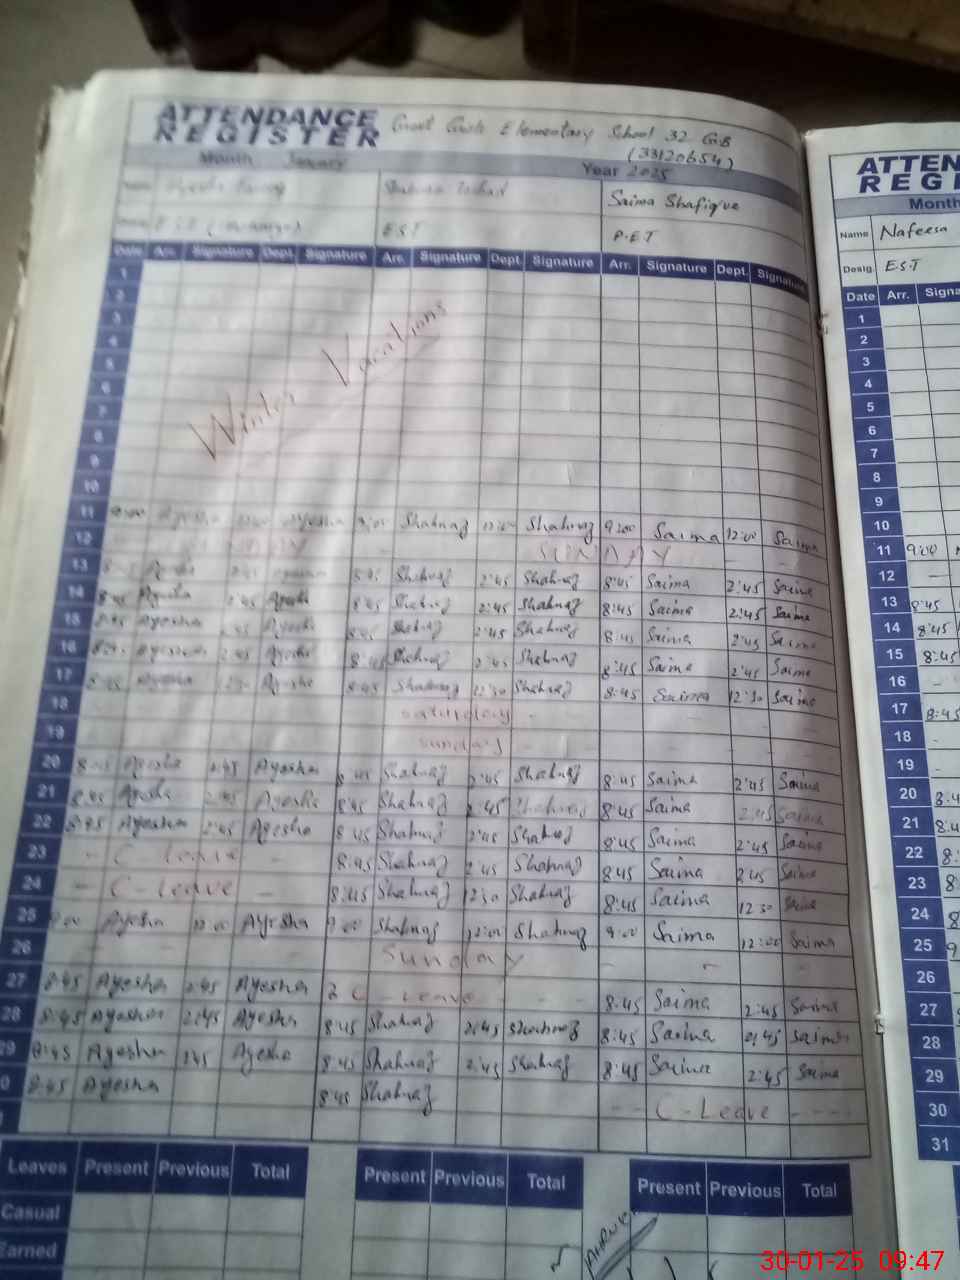 ATTENDANCE REGISTER Govt Girls Elementary School 32 GB
(33120654)
Month January Year 2025
Shahnaz Saima Shafique
E.S.T P.E.T
Date Arr. Signature Dept. Signature Arr. Signature Dept. Signature Arr. Signature Dept. Signature
1
2
3
4
5
6
7
8
9
10
Winter Vacations
11 9:00 Ayesha 12:00 Ayesha 9:00 Shahnaz 12:00 Shahnaz 9:00 Saima 12:00 Saima
12 SUNDAY
13 8:45 Ayesha 2:45 Ayesha 8:45 Shahnaz 2:45 Shahnaz 8:45 Saima 2:45 Saima
14 8:45 Ayesha 2:45 Ayesha 8:45 Shahnaz 2:45 Shahnaz 8:45 Saima 2:45 Saima
15 8:45 Ayesha 2:45 Ayesha 8:45 Shahnaz 2:45 Shahnaz 8:45 Saima 2:45 Saima
16 Ayesha 2:45 Ayesha 8:45 Shahnaz 2:45 Shahnaz 8:45 Saima 2:45 Saima
17 8:45 Ayesha Ayesha 8:45 Shahnaz 12:30 Shahnaz 8:45 Saima 12:30 Saima
18 Saturday
19 Sunday
20 Ayesha 2:45 Ayesha 8:45 Shahnaz 2:45 Shahnaz 8:45 Saima 2:45 Saima
21 8:45 Ayesha 2:45 Ayesha 8:45 Shahnaz 2:45 Shahnaz 8:45 Saima 2:45 Saima
22 8:45 Ayesha 2:45 Ayesha 8:45 Shahnaz 2:45 Shahnaz 8:45 Saima 2:45 Saima
23 - C-leave - 8:45 Shahnaz 2:45 Shahnaz 8:45 Saima 2:45 Saima
24 - C-Leave - 8:45 Shahnaz 12:30 Shahnaz 8:45 Saima 12:30 Saima
25 9:00 Ayesha 12:00 Ayesha 9:00 Shahnaz 12:00 Shahnaz 9:00 Saima 12:00 Saima
26 Sunday
27 8:45 Ayesha 2:45 Ayesha C-Leave 8:45 Saima 2:45 Saima
28 8:45 Ayesha 2:45 Ayesha 8:45 Shahnaz 2:45 Shahnaz 8:45 Saima 2:45 Saima
29 8:45 Ayesha 2:45 Ayesha 8:45 Shahnaz 2:45 Shahnaz 8:45 Saima 2:45 Saima
8:45 Ayesha 8:45 Shahnaz C-Leave
Leaves Present Previous Total Present Previous Total Present Previous Total
Casual
Earned
Month
Name Nafeesa
Desig. E.S.T
Date Arr.
1
2
3
4
5
6
7
8
9
10
11 9:00
12
13 8:45
14 8:45
15 8:45
16
17 8:45
18
19
20
21
22
23
24
25
26
27
28
29
30
31
30-01-25 09:47